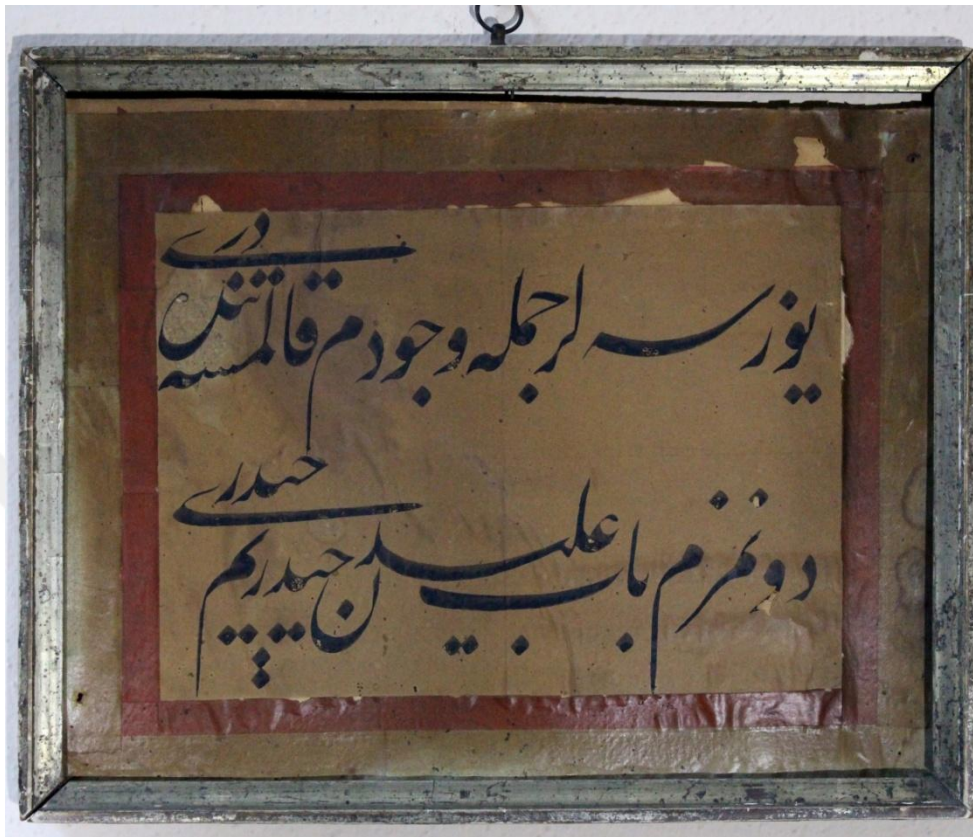 یوزسه لر جمله وجودم قالمسه تنده دری
دونمزم باب علیدن حیدریم حیدری